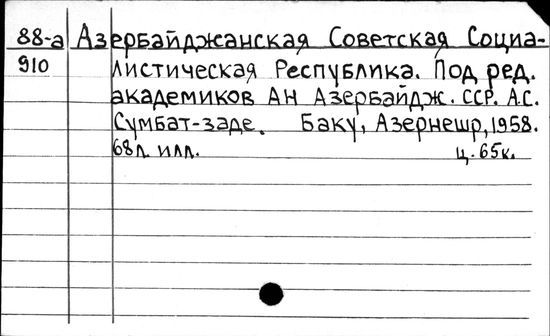 88-а Азербайджанская Советская Социа-
910 листическая Республика. Под ред.
академиков АН Азербайдж. ССР. А.С.
Сумбат-заде. Баку, Азернешр, 1958.
68л. илл. ц. 65к.